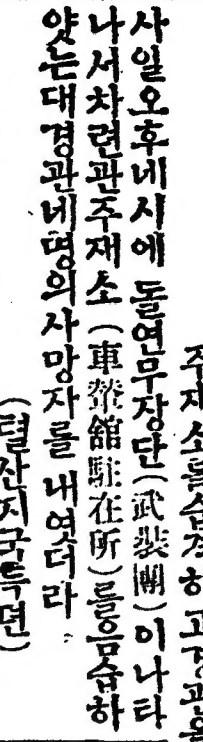 주재소를습격하고경관을
사일오후네시에돌연무장단(武裝團)이나타
나서차련관주재소(車輦館駐在所)를음습하
얏는대경관네명의사망자를내엿더라
(텰산지국특뎐)